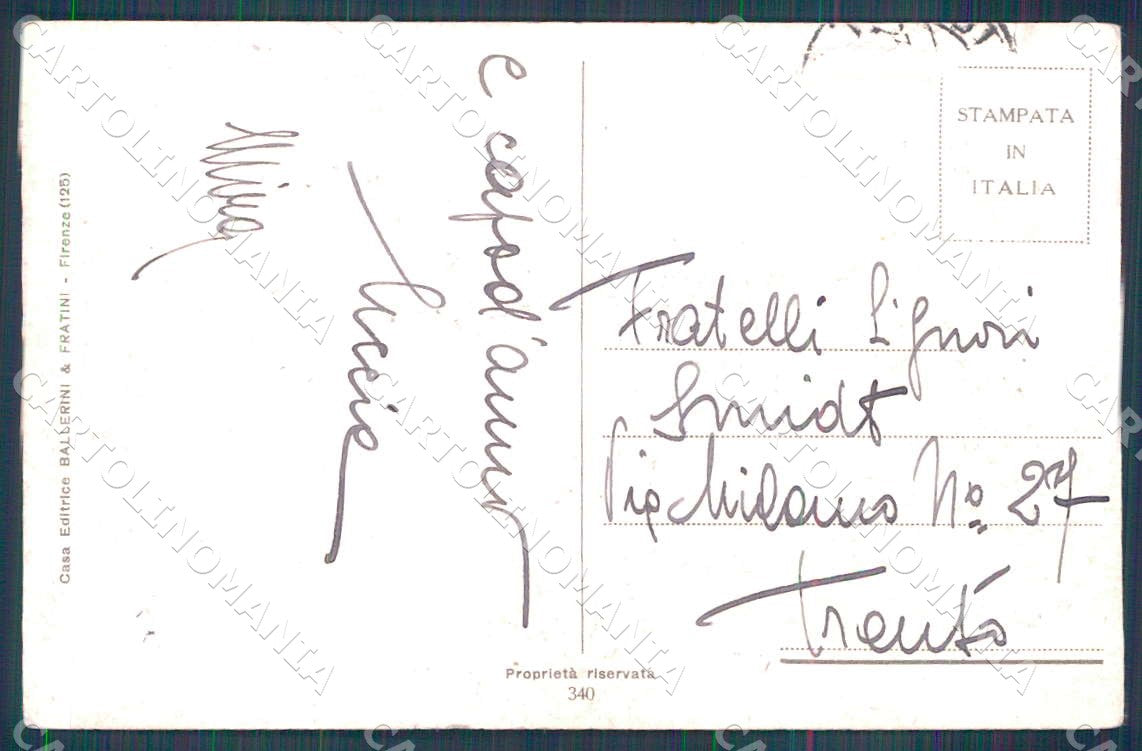 e capod'anno
Lucia
Fratelli Signori
Smidt
Via Milano Nº 27
Trento
STAMPATA
IN
ITALIA
Casa Editrice BALLERINI & FRATINI - Firenze (125)
Proprietà riservata
340
CARTOLINOMANIA